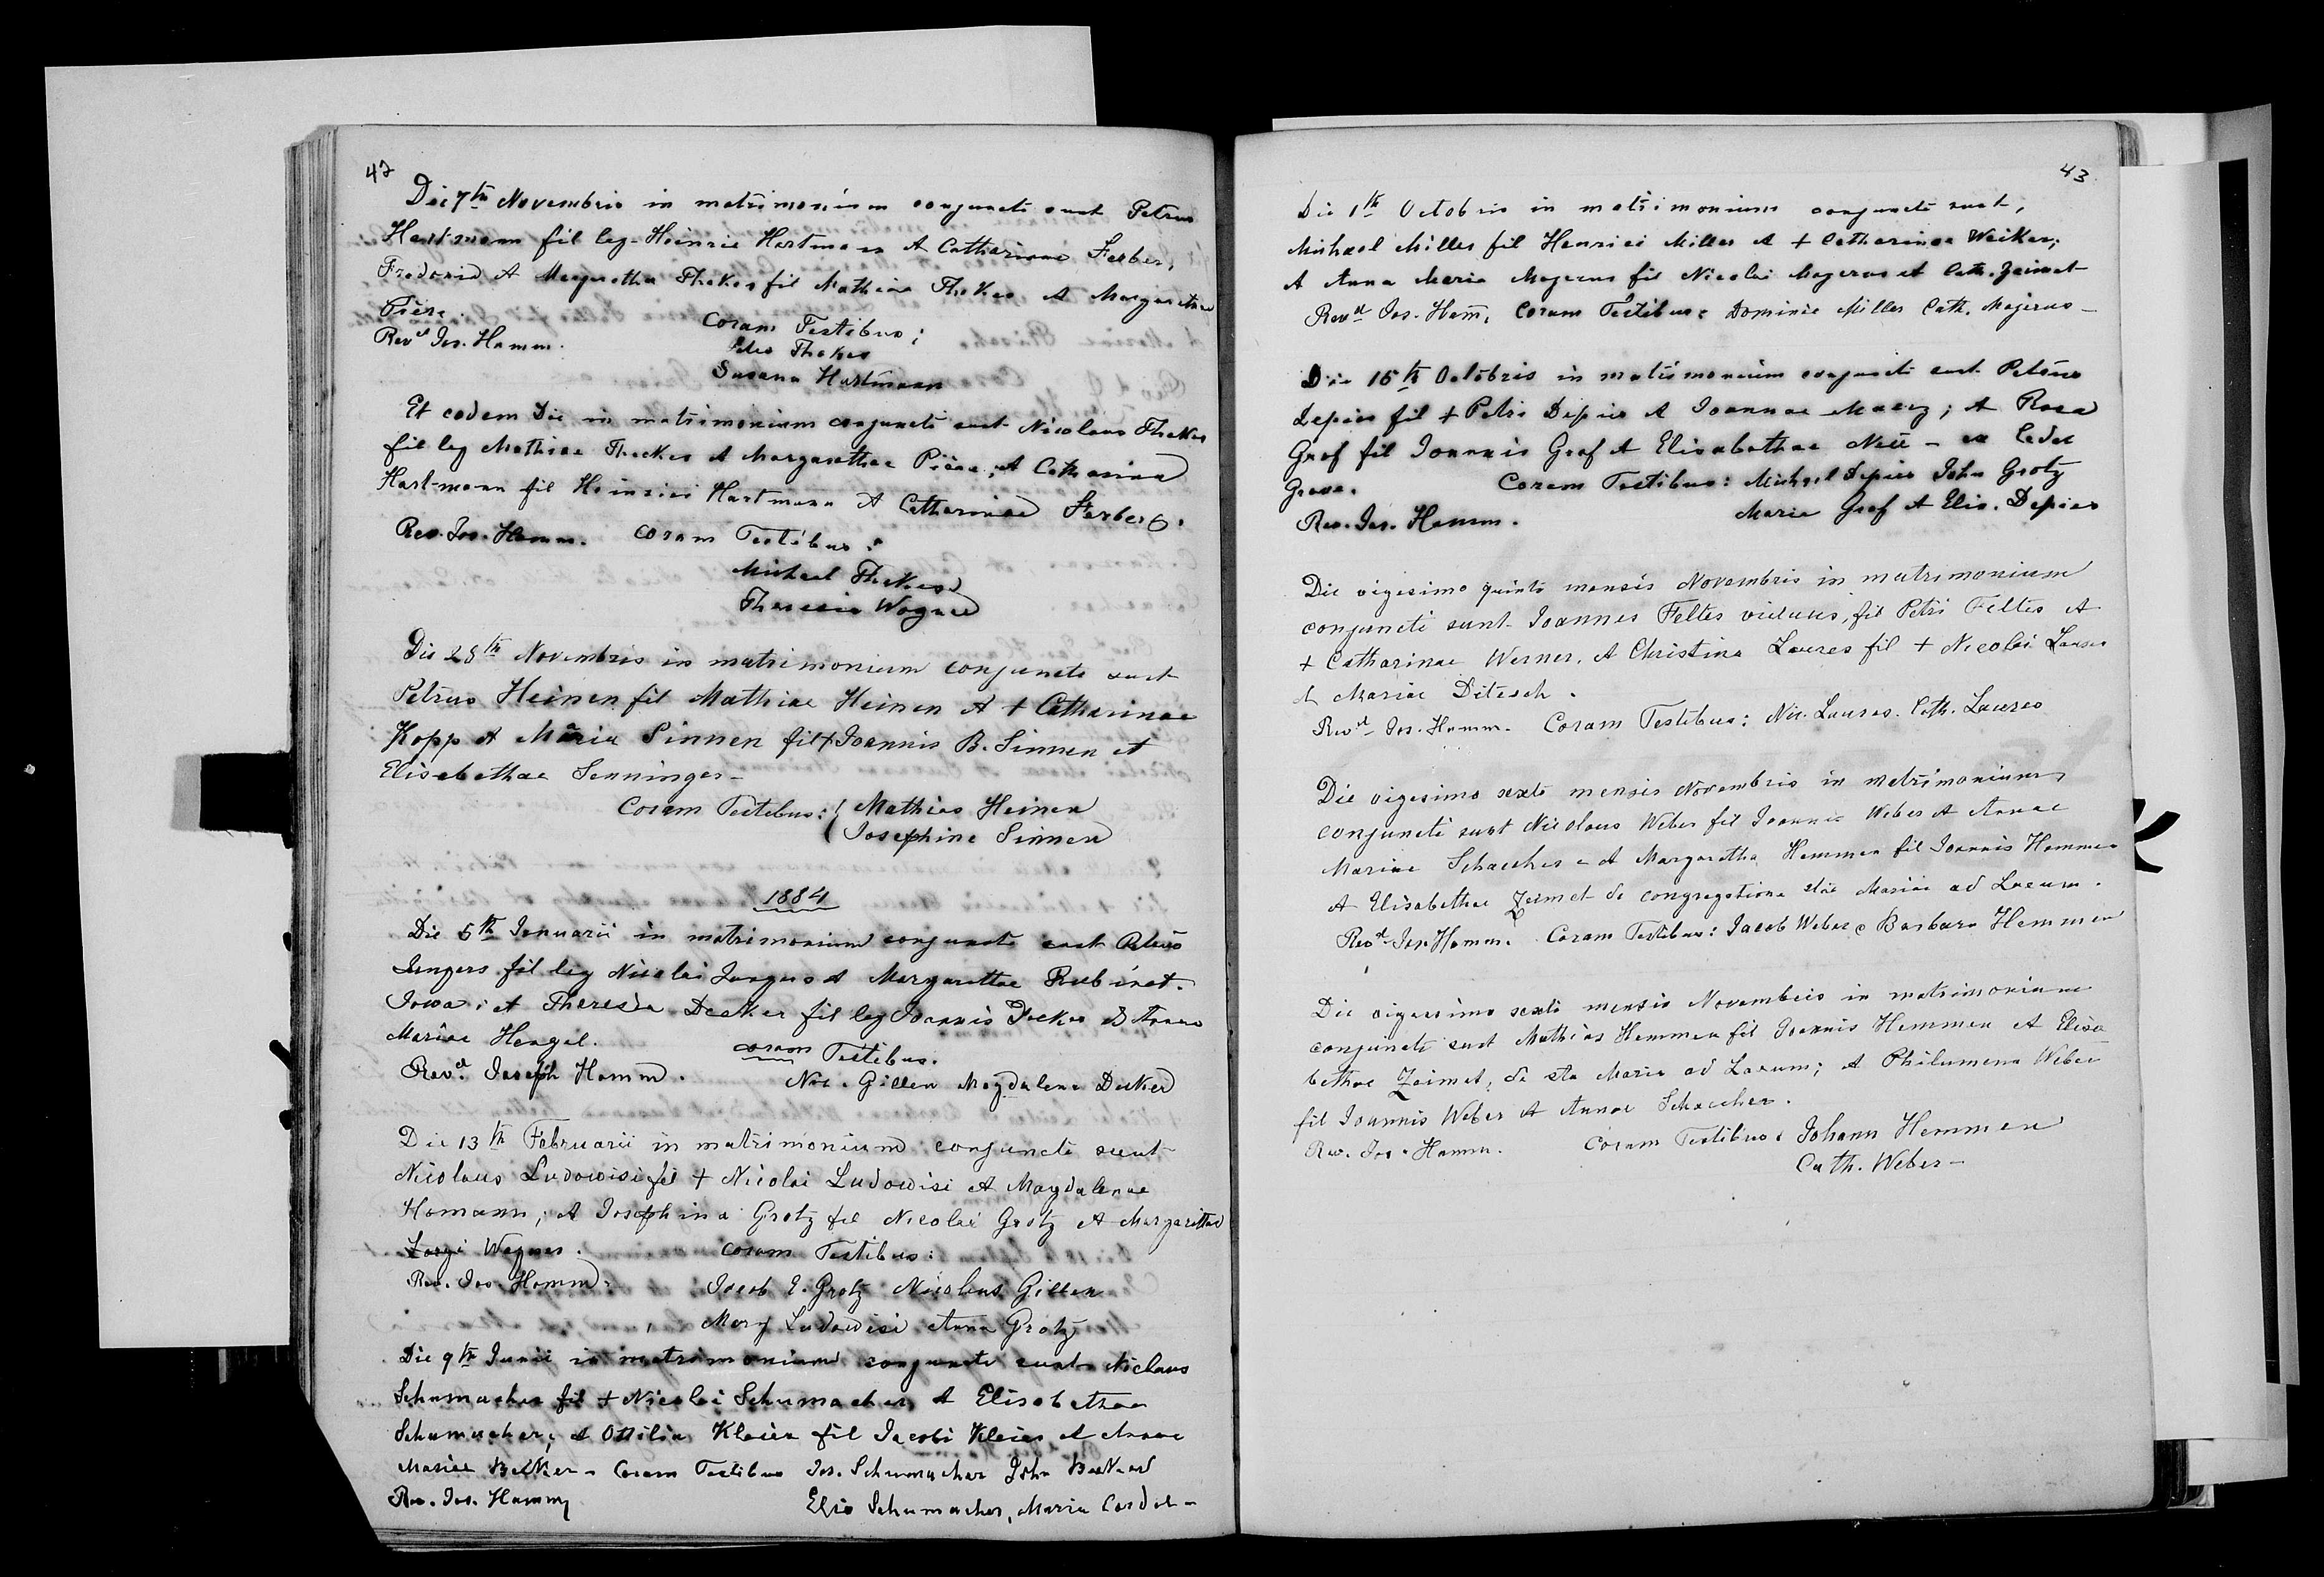 42
Die 7th Novembris in matrimonium conjuncti sunt Petrus
Hartmann fil leg. Heinric Hartmann et Catharinae Ferber,
Fredonia et Margaretha Theken fil Mathiae Theken et Margarethae
Pière.
Coram Testibus;
Revd Jos. Hamm.
Theken
Susana Hartmann
Et eodem Die in matrimonium conjuncti sunt Nicolaus Theken
fil leg Mathiae Theken et Margarethae Pière, et Catharina
Hartmann fil Heinrici Hartmann et Catharinae Ferber.
Rev. Jos. Hamm. Coram Testibus:
Michael Theken
Theresia Wagner
Die 28th Novembris in matrimonium conjuncti sunt
Petrus Heinen fil Mathiae Heinen et + Catharinae
Kopp et Maria Sinnen fil + Joannis B. Sinnen et
Elisabethae Senninger -
Coram Testibus: ( Mathias Heinen
( Josephine Sinnen
1884
Die 5th Januarii in matrimonium conjuncti sunt Petrus
Jungers fil leg Nicolai Jungers et Margarethae Rubinet.
Iowa; et Theresia Decker fil leg Joannis Decker et Annae
Mariae Hengel.
coram Testibus.
Revd. Joseph Hamm.
Nic. Gillen Magdalena Decker
Die 13th Februarii in matrimonium conjuncti sunt
Nicolaus Ludowisi fil + Nicolai Ludowisi et Magdalenae
Homann; et Josephina Grotz fil Nicolai Grotz et Margarithae
Wagner. Coram Testibus:
Rev. Jos. Hamm.
Jacob E. Grotz Nicolaus Gillen
Mary Ludowisi Anna Grotz
Die 9th Junii in matrimonium conjuncti sunt Niclaus
Schumacher fil + Nicolai Schumacher et Elisabethae
Schumacher; et Ottilia Klein fil Jacobi Klein et Annae
Mariae Becker - Coram Testibus Jos. Schumacher John Becker
Rev. Jos. Hamm
Elis Schumacher, Maria Cordel -
43
Die 1th Octobris in matrimonium conjuncti sunt,
Michael Miller fil Henrici Miller et + Catharinae Weiker;
et Anna Maria Majerus fil Nicolai Majerus et Cath. Zeimet
Revd Jos. Ham, Coram Testibus: Dominic Miller Cath. Majerus -
Die 15th Octobris in matrimonium conjuncti sunt Petrus
Depies fil + Petri Depies et Joannae Maerz; et Rosa
Graf fil Joannis Graf et Elisabethae Neu - ex Cedar
Grove. Coram Testibus: Michael Depies John Grotz
Rev. Jos. Hamm. Maria Graf et Elis. Depies
Die vigesimo quinto mensis Novembris in matrimonium
conjuncti sunt Joannes Feltes viduus, fil Petri Feltes et
+ Catharinae Werner. et Christina Laures fil + Nicolai Laures
et Mariae Ditesch.
Revd Jos. Hamm. Coram Testibus: Nic. Laures. Cath. Laures
Die vigesimo sexto mensis Novembris in matrimonium
conjuncti sunt Nicolaus Weber fil Joannis Weber et Annae
Mariae Schaecher - et Margaretha Hemmen fil Joannis Hemmen
et Elisabethae Zeimet de congregatione stae Mariae ad Lacum.
Revd Jos. Hamm. Coram Testibus: Jacob Weber & Barbara Hemmen
Die vigessimo sexto mensis Novembris in matrimonium
conjuncti sunt Mathias Hemmen fil Joannis Hemmen et Elisa
bethae Zeimet, de sta Maria ad Lacum; et Philumena Weber
fil Joannis Weber et Annae Schaecher.
Rev. Jos. Hamm. Coram Testibus: Johann Hemmen
Cath. Weber -